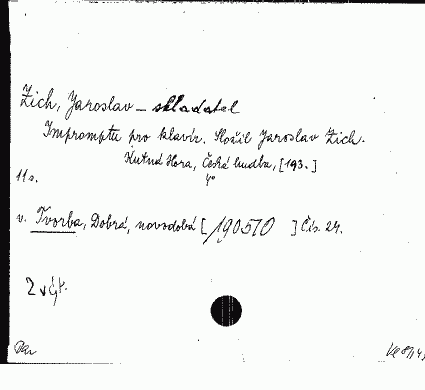 Zich, Jaroslav – skladatel
Impromptu pro klavír. Složil Jaroslav Zich.
Kutná Hora, Česká hudba, [193.]
4°
11 s.
v. Tvorba, Dobrá, novodobá [190570] Čís. 24.
2 výt.
Dar